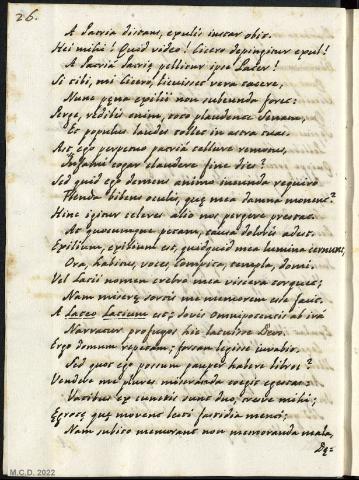 26.
A Patria distans, expulis instar obit.
Hei mihi! Quid video! Cicero depingitur exul!
A Patriâ Patriæ pellitur ipse Pater!
Si tibi, mi Cicero, licuisset vera tacere,
Nunc pœna exilii non subeunda foret:
Perge, redibis enim, toto plaudente Senatu,
Et populus laudes tollet in astra tuas.
Ast ego perpetuo patriâ tellure remotus,
cogar claudere fine dies?
Sed quid ego demens animo iucunda requiro
bibens oculis, quæ mea damna monent?
Hinc igitur celeres alio nos pergere præstat,
At quocumque petam, causa doloris adest.
Exilium, exilium est, quidquid mea lumina cernunt,
Ora, habitus, voces, compita, templa, domi.
Vel Latii nomen crebrò mea viscera torquet;
Nam miseræ sortis me memorem esse facit.
A Lateo Latium est; Iovis Omnipotentis ab irâ
Narratur profugos hic latuisse Deos.
Ergo domum repetam; forsan legisse iuvabit.
Sed quos ego possum pauper habere libros?
Vendere me plures miseranda coegit egestas:
Vatibus ex cunctis sunt duo, tresve mihi;
Ægrotæ quæ movent lecti fastidia menti;
Nam subito memorant non memoranda mala,
De=
M.C.D. 2022